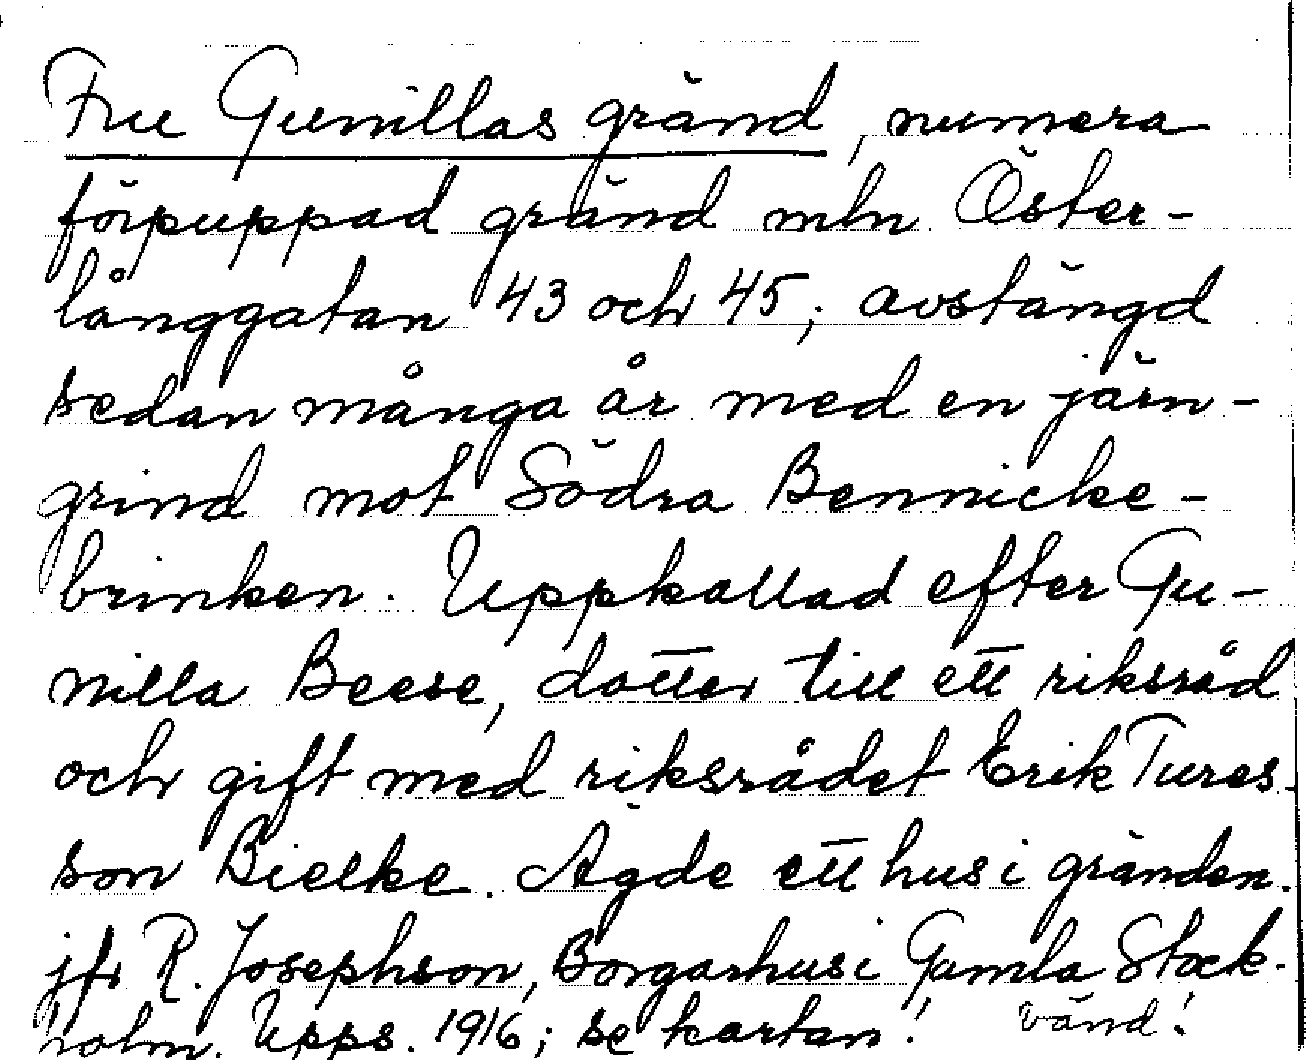 Fru Gunillas gränd, numera
förpuppad gränd mln Öster-
långgatan 43 och 45; avstängd
sedan många år med en järn-
grind mot Södra Bennicke-
brinken. Uppkallad efter Gu-
nilla Beese, dotter till ett riksråd
och gift med riksrådet Erik Tures-
son Bielke. Ägde ett hus i gränden.
jfr R. Josephson, Borgarhus i Gamla Stock-
holm. Upps. 1916; se kartan! vänd!